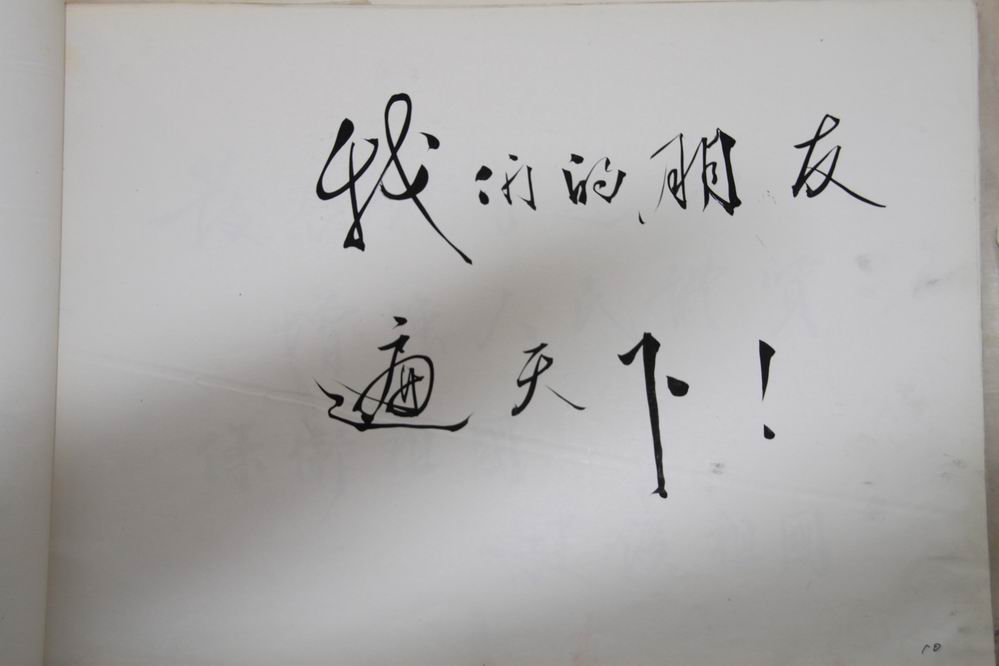 我们的朋友
遍天下！
10